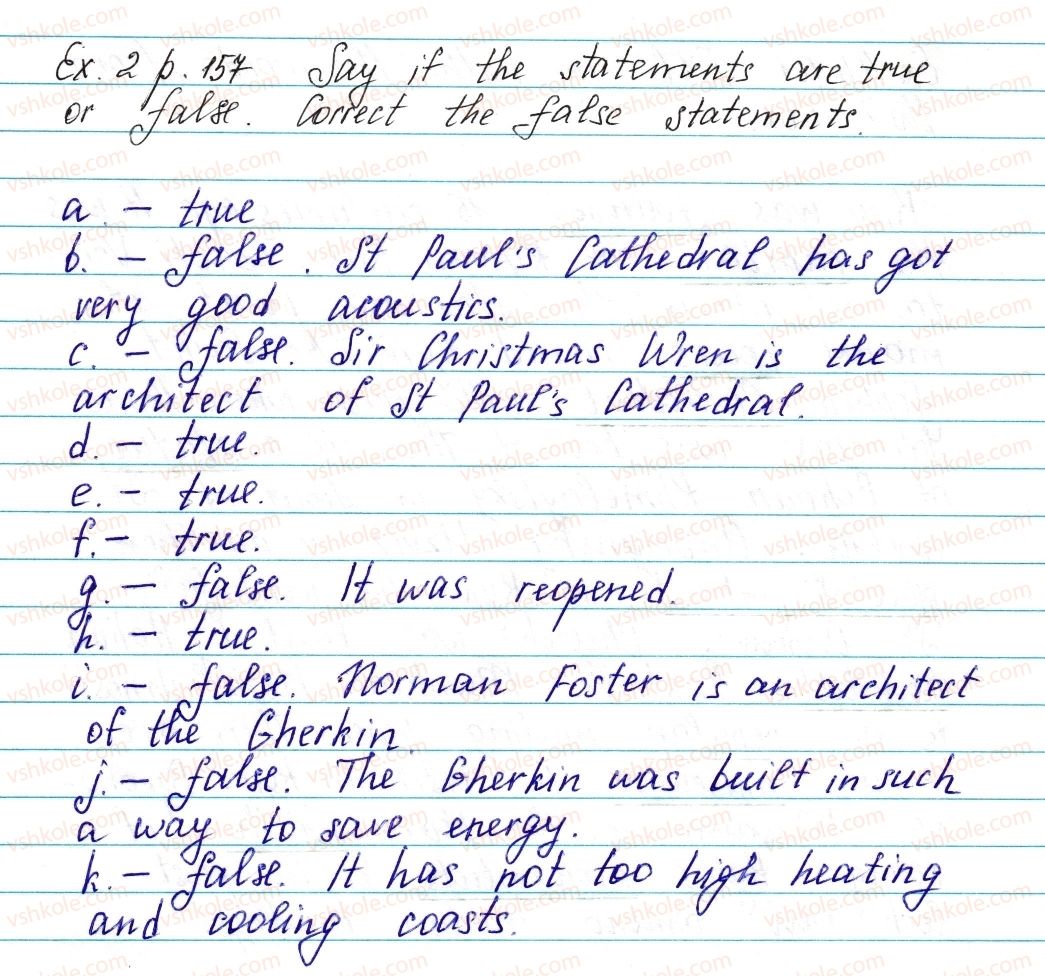 Ex. 2 p. 157 Say if the statements are true
or false. Correct the false statements.
a. – true
b. – false. St Paul's Cathedral has got
very good acoustics.
c. – false. Sir Christmas Wren is the
architect of St Paul's Cathedral.
d. – true.
e. – true.
f. – true.
g. – false. It was reopened.
h. – true.
i. – false. Norman Foster is an architect
of the Gherkin.
j. – false. The Gherkin was built in such
a way to save energy.
k. – false. It has not too high heating
and cooling coasts.
vshkole.com